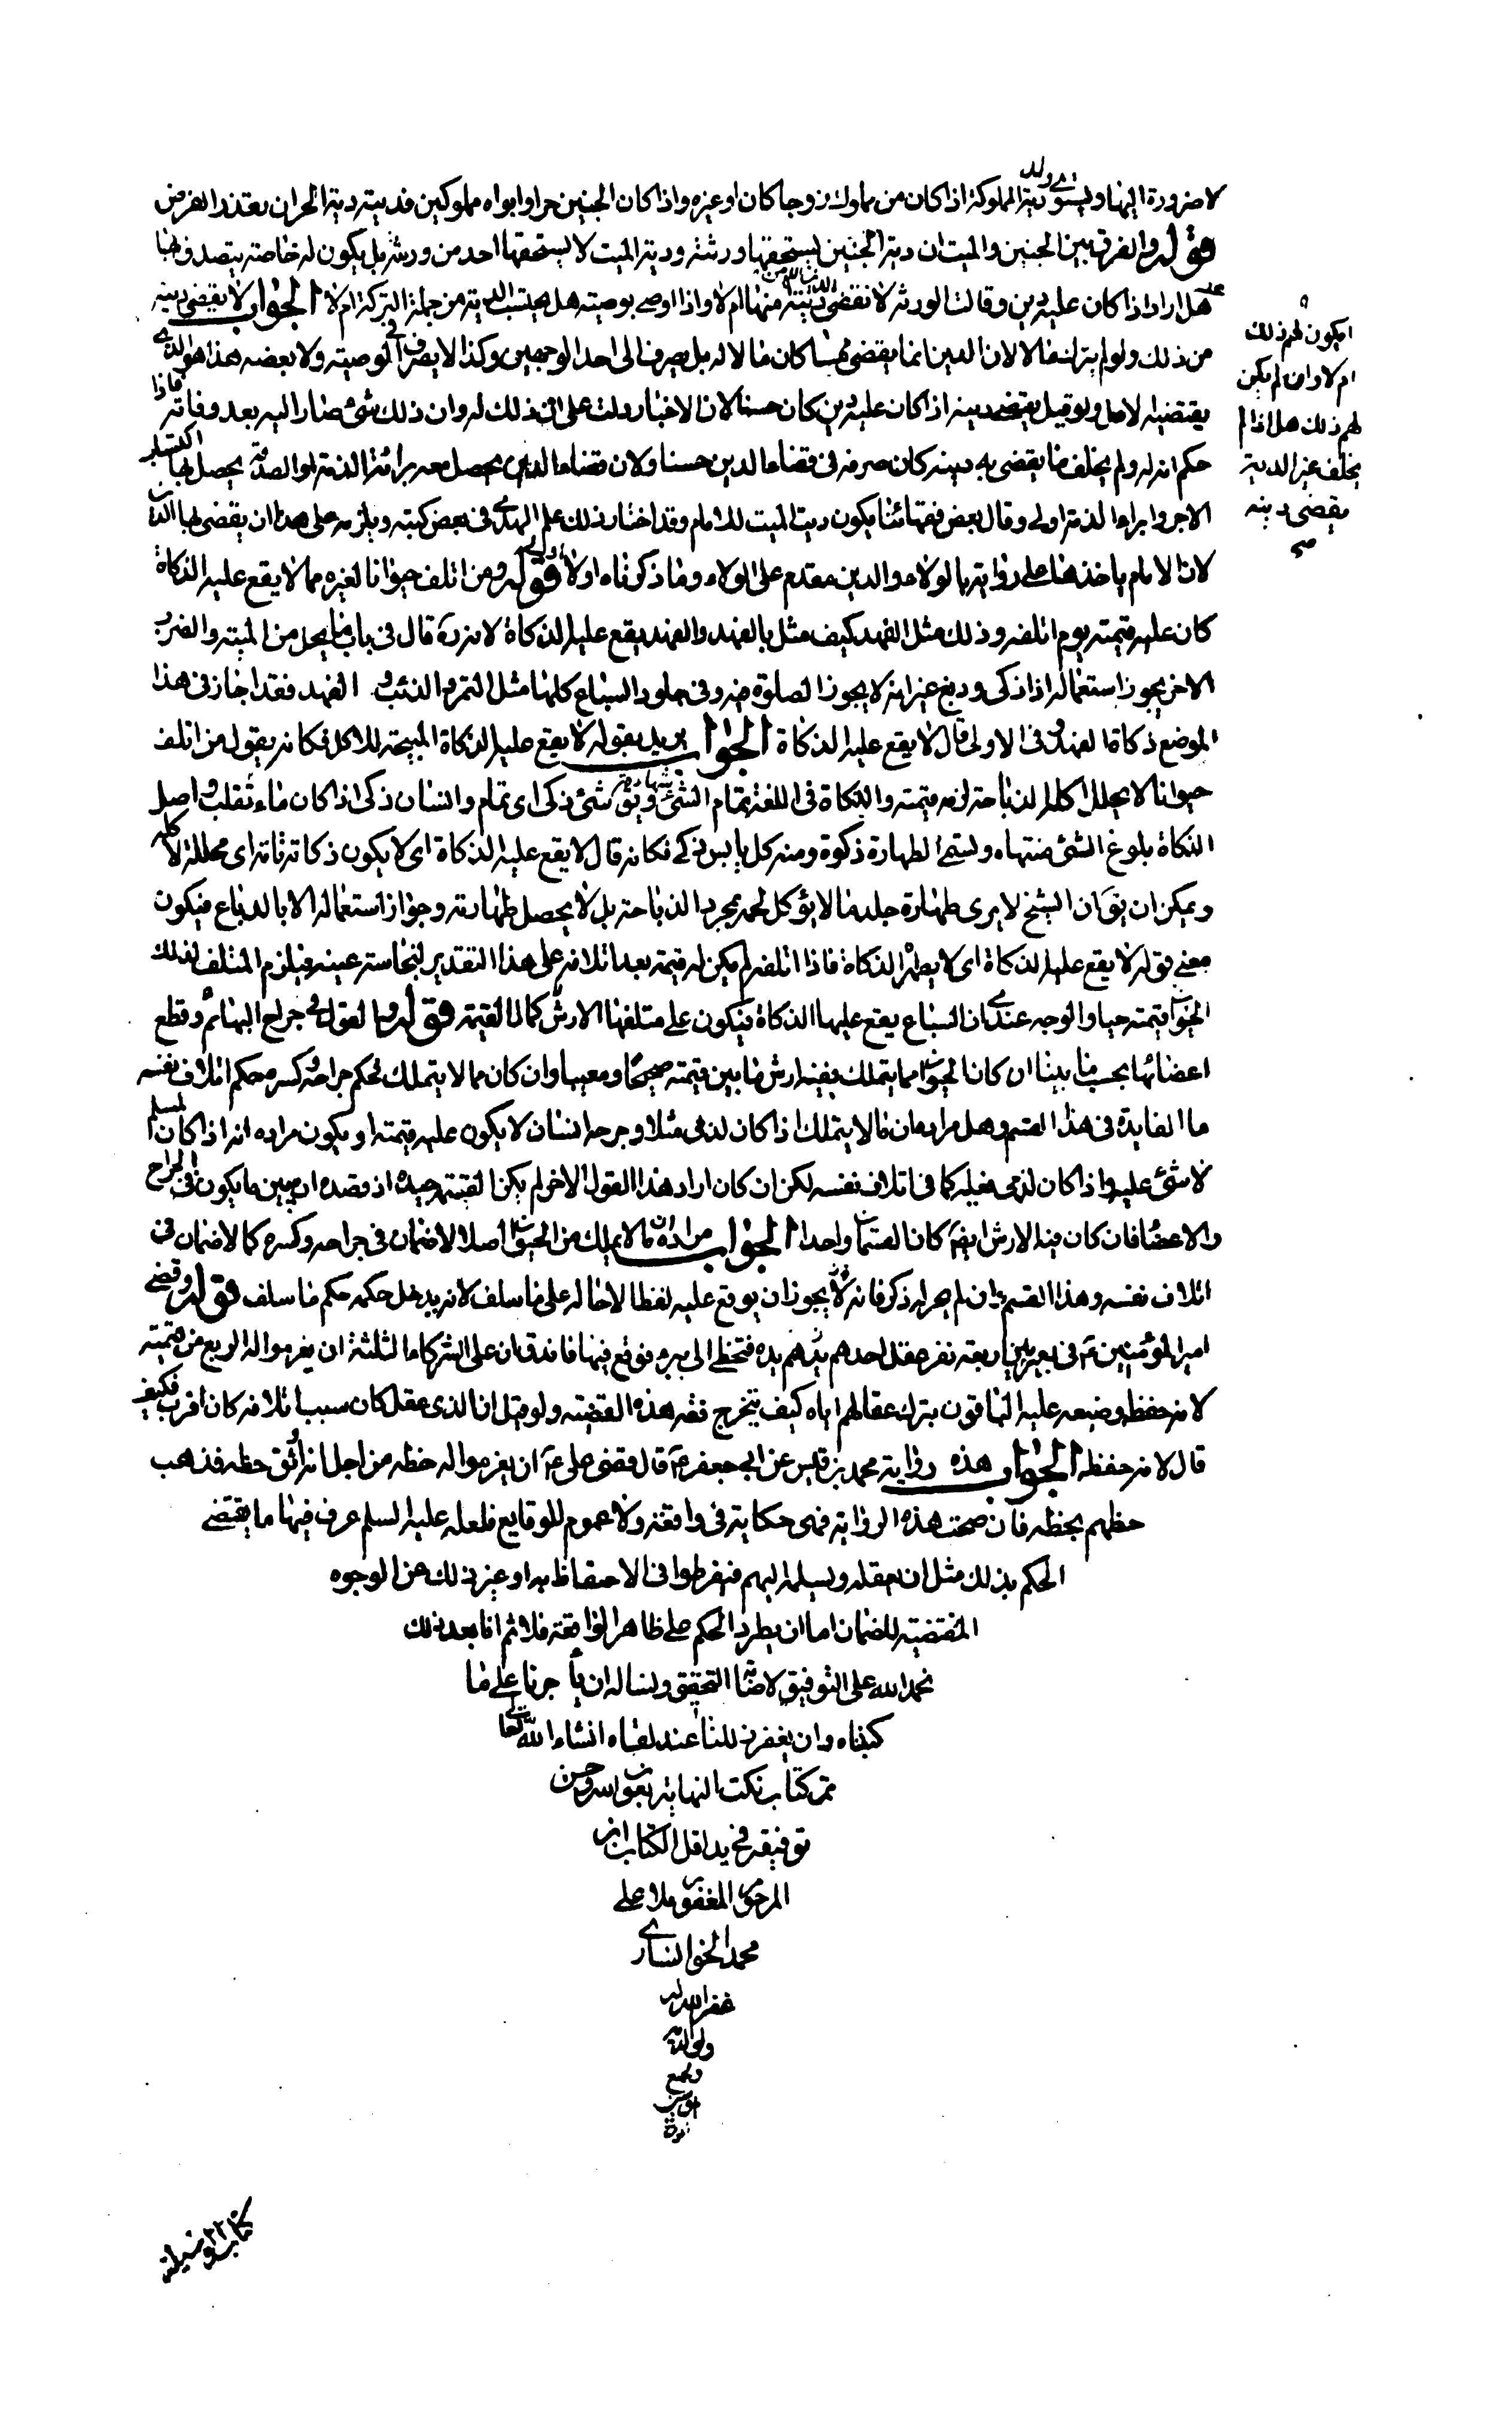 لا ضرورة اليها ويستوى دية ولد المملوكة اذا كان من مملوك زوجا كان او غيره واذا كان الجنين حرا وابواه مملوكين فديته دية الحر ان بعد الفرض
قوله والفرق بين الجنين والميت ان دية الجنين يستحقها ورثته ودية الميت لا يستحقها احد من ورثته بل يكون له خاصة يتصدق بها
عنه هل اراد اذا كان عليه دين وقالت الورثة لا نقضى دينه منها ام لا واذا اوصى بوصية هل يحتسب الدية من جملة التركة ام لا الجواب لا يقضى دينه
من ذلك ولو لم يترك مالا لان الدين انما يقضى مما كان مالا له بل يصرف الى احد الوجهين وكذا لا يصرف فى الوصية ولا بعضه هذا هو الذى
يقتضيه الاصل ولو قيل يقضى دينه اذا كان عليه دين كان حسنا لان الاخبار دلت على ان ذلك له وان ذلك شئ صار اليه بعد وفاته فاذا
حكم انه له ولم يخلف ما يقضى به دينه كان صرفه فى قضاء الدين حسنا ولان قضاء الدين يحصل معه برائة الذمة والصدقة يحصل بها اكتساب
الاجر وابراء الذمة اولى وقال بعض فقهائنا يكون دية الميت للامام وقد اختار ذلك علم الهدى فى بعض كتبه ويلزمه على هذا ان يقضى بها الدين
لان الامام ياخذها على روايته بالولاء والدين مقدم على الولاء وما ذكرناه اولا اولى قوله ومن اتلف حيوانا لغيره مما لا يقع عليه الذكاة
كان عليه قيمته يوم اتلفه وذلك مثل الفهد كيف مثل بالفهد والفهد يقع عليه الذكاة لانه ره قال فى باب ما يحل من الميتة والضرب
الاخر يجوز استعماله اذا ذكى ودبغ غير انه لا يجوز الصلوة فيه وفى جلود السباع كلها مثل النمر والذئب و الفهد فقد اجاز فى هذا
الموضع ذكاة الفهد وفى الاولى قال لا يقع عليه الذكاة الجواب يريد بقوله لا يقع عليه الذكاة المبيحة للاكل فكانه يقول من اتلف
حيوانا لا يحلل اكله الذباحة لزمه قيمته والذكاة فى اللغة تمام الشئ ونهايته ويق شئ ذكى اى تمام وانسان ذكى اذا كان ماء ثقلب واصل
الذكاة بلوغ الشئ منتهاه وتسمى الطهارة ذكوة ومنه كل يابس ذكى فكانه قال لا يقع عليه الذكاة اى لا يكون ذكاته تامة اى محللة لاكله
ويمكن ان يق ان الشيخ لا يرى طهارة جلد ما لا يؤكل لحمه بمجرد الذباحة بل لا يحصل طهارته وجواز استعماله الا بالدباغ فيكون
معنى قوله لا يقع عليه الذكاة اى لا يطهره الذكاة فاذا اتلفه لم يكن له قيمة بعد اتلافه على هذا التقدير لنجاسة عينه فيلزم المتلف لذلك
الحيوان قيمته حيا والوجه عندى ان السباع يقع عليها الذكاة فيكون على متلفها الارش كمال القيمة قوله والقول فى جراح البهائم وقطع
اعضائها بحسب ما بينا ان كان الحيوان مما يتملك ففيه ارش ما بين قيمته صحيحا ومعيبا وان كان مما لا يتملك فحكم جراحه وكسره حكم اتلاف نفسه
ما الفايدة فى هذا القسم وهل مراده ان ما لا يتملك اذا كان لذمى مثلا وجرحه انسان لا يكون عليه قيمته او يكون مراده انه اذا كان لمسلم
لا شئ عليه واذا كان لذمى فعليه كما فى اتلاف نفسه لكن ان كان اراد هذا القول الاخر لم يكن القسمة جيدة اذ قصده ان يبين ما يكون فى الجراح
والاعضاء فان كان فيه الارش ايضا كان القسمان واحدا الجواب مراده ان ما لا يملك من الحيوان اصلا لا ضمان فى جراحه وكسره كما لا ضمان فى
اتلاف نفسه وهذا القسم وان لم يجر له ذكر فانه لا يجوز ان يوقع عليه لفظا لاحاله على ما سلف لانه يدخل حكمه حكم ما سلف قوله وقضى
امير المؤمنين ع فى بعير بين اربعة نفر فعقل احدهم يده فتخطى الى بئر فوقع فيها فاندق ان على الشركاء الثلثة ان يغرموا له الربع من قيمته
لانه حفظه وضيعه عليه الباقون بترك عقالهم اياه كيف يتخرج فقه هذه القضية ولو قيل ان الذى عقل كان سبب اتلافه كان اقرب فكيف
قال لانه حفظه الجواب هذه رواية محمد بن قيس عن ابى جعفر ع قال قضى على ع ان يغرموا له حظه من اجل انه اوثق حظه فذهب
حظهم بحظه فان صحت هذه الرواية فهى حكاية فى واقعة ولا عموم للوقايع فلعله عليه السلم عرف فيها ما يقتضى
الحكم بذلك مثل ان يعقله ويسلمه اليهم ففرطوا فى الاحتفاظ به او غير ذلك من الوجوه
المقتضية للضمان اما ان يطرد الحكم على ظاهر الواقعة فلا ثم انا بعد ذلك
نحمد الله على التوفيق لاصابة التحقيق ونساله ان يأجرنا على ما
كتبناه وان يغفر زللنا عند لقاه انشاء الله تعالى
تم كتاب نكت النهاية بعون الله وحسن
توفيقه فى يد اقل الكتاب ابن
المرحوم المغفور ملا على
محمد الخوانسارى
غفر الله له
ولوالديه
ولجميع
المؤمنين
ايكون لهم ذلك
ام لا وان لم يكن
لهم ذلك هل اذا لم
يخلف غير الدية
يقضى دينه
صح